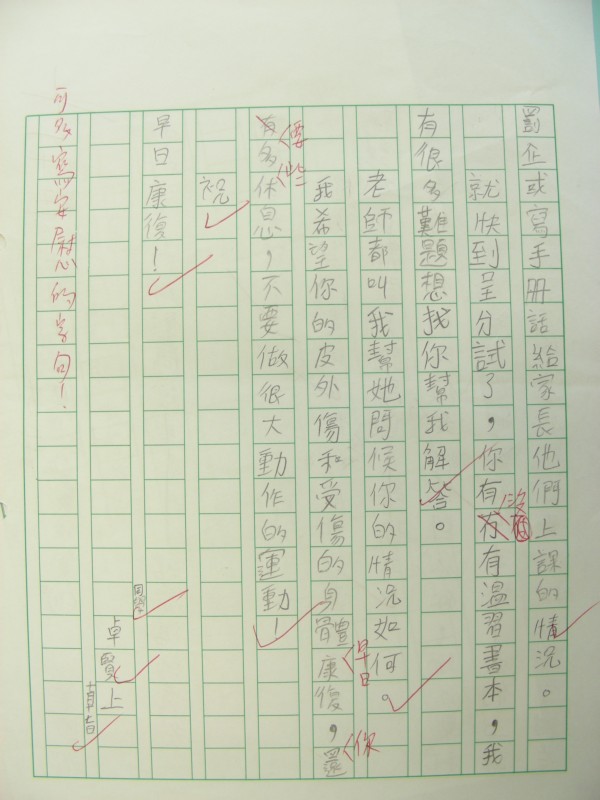 罰企或寫手册話給家長他們上課的情況。
就快到呈分試了，你有没有温習書本，我
有很多難題想找你幫我解答。
老師都叫我幫她問候你的情況如何。
我希望你的皮外傷和受傷的身體早日康復，還
你要有多些休息，不要做很大動作的運動！
祝
早日康復！
同學
卓賢上
可多寫安慰的字句！